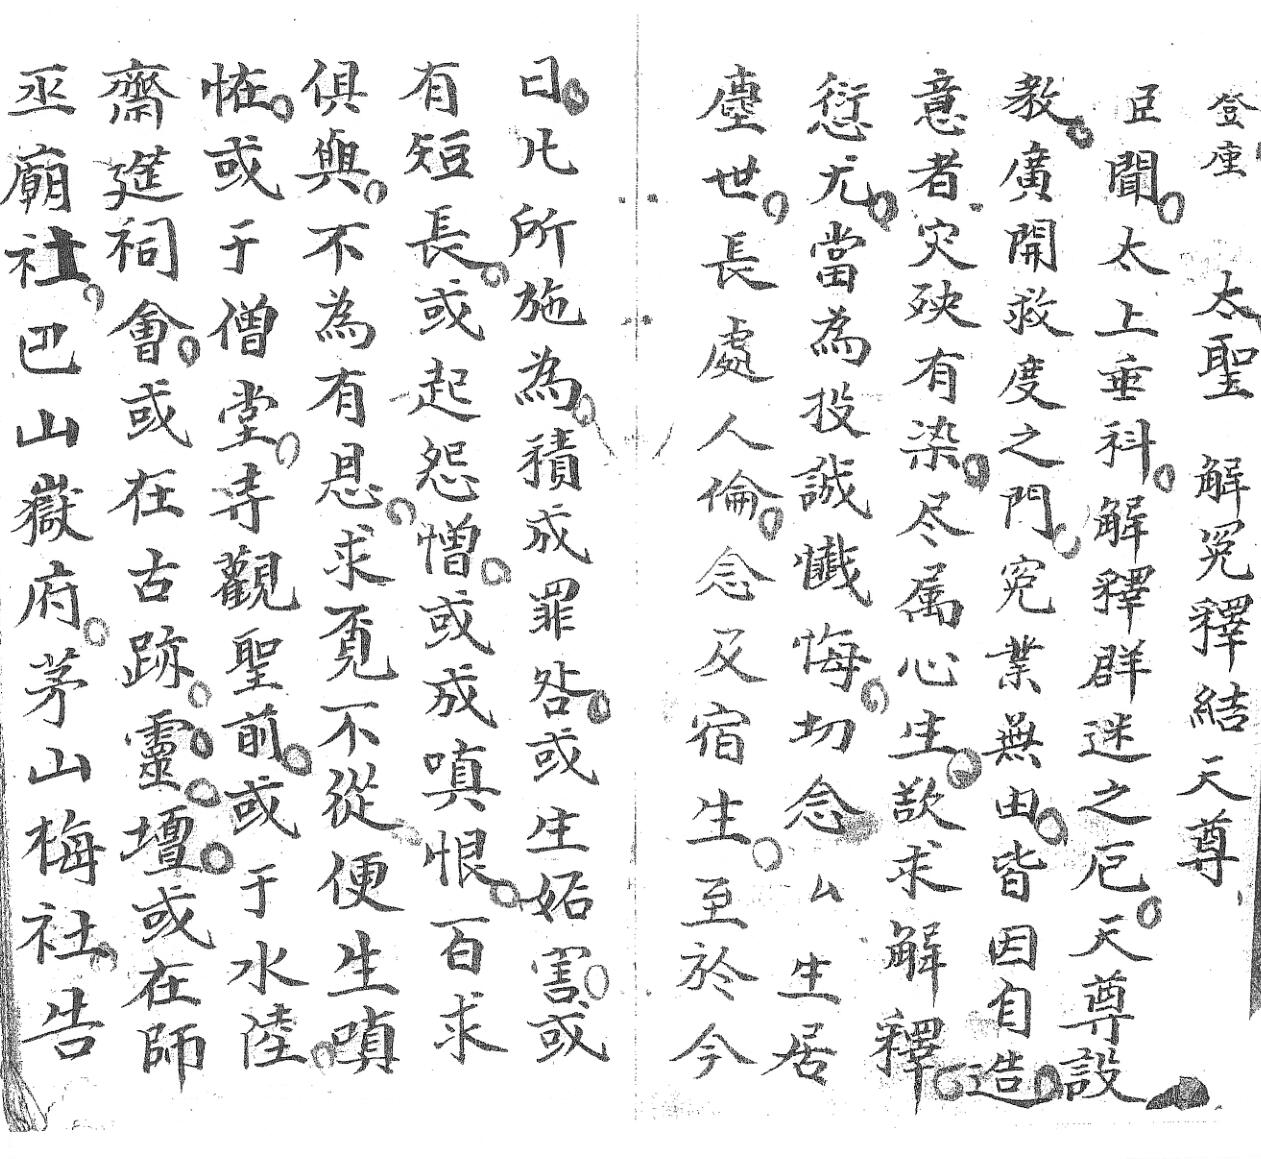 登座　太聖　解冤釋結天尊
臣聞太上垂科解釋群迷之厄天尊設
教廣開救度之門寃業無由皆因自造
意者灾殃有染尽属心生欲求解釋
愆尤當為投誠懺悔切念厶生居
塵世長處人倫念及宿生至於今
日凡所施為積成罪咎或生妬害或
有短長或起怨憎或成嗔恨百求
俱與不為有恩求覔不從便生嗔
恠或于僧堂寺觀聖前或于水陸
齋筵祠會或在古跡靈壇或在師
巫廟社巴山嶽府茅山梅社告